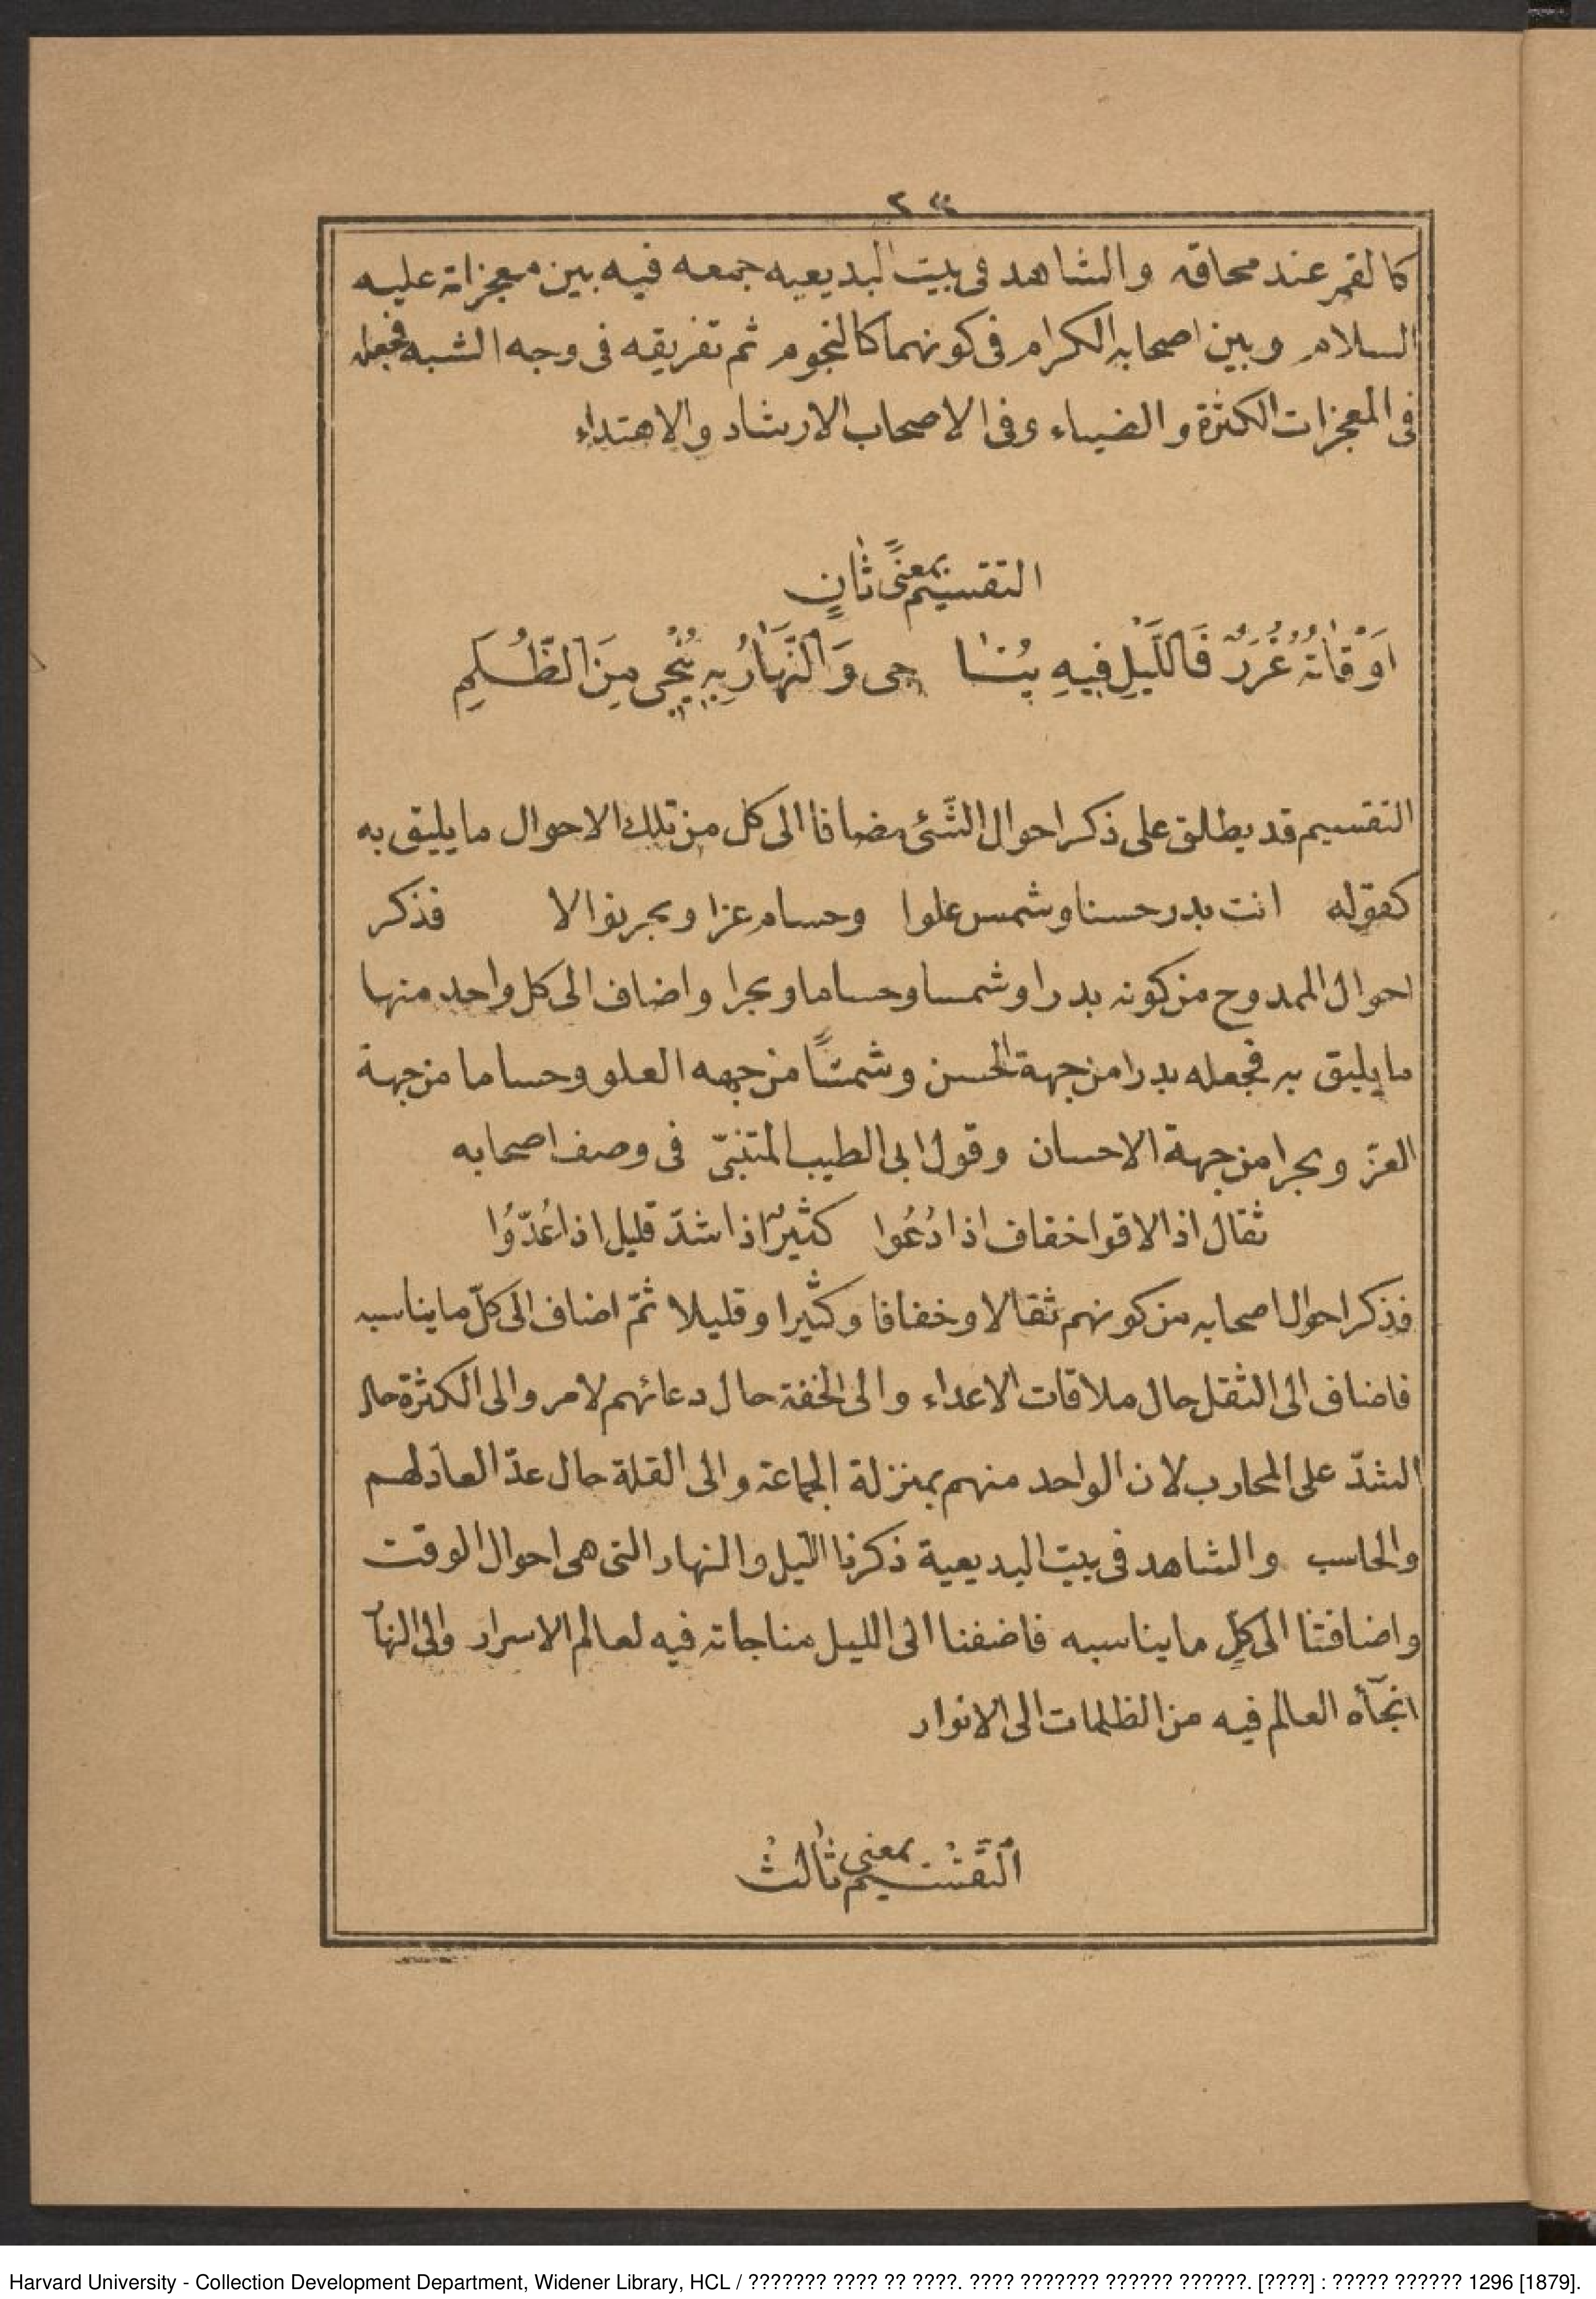 كالقمر عند محاقه والشاهد فى بيت البديعيه جمعه فيه بين معجزاته عليه
السلام وبين اصحابه الكرام فى كونهما كالنجوم ثم تفريقه فى وجه الشبه فجعله
فى المعجزات الكثرة والضياء وفى الاصحاب الارشاد والاهتداء
التقسيم بمعنًى ثانٍ
اَوْقَاتُهُ غُرَرٌ فَاللَّيْلِ فِيهِ يُنَا جى وَالنَّهَارُ بِهِ يُنْجى مِنَ الظُّلَمِ
التقسيم قد يطلق على ذكر احوال الشّئى مضافا الى كل من تلك الاحوال ما يليق به
كقوله انت بدر حسنا وشمس علوا وحسام عزا وبحر نوالا فذكر
احوال الممدوح من كونه بدرا وشمسا وحساما وبحرا واضاف الى كل واحد منها
ما يليق به فجعله بدرا من جهة الحسن وشمسًا من جهه العلو وحساما من جهة
العز وبحرا من جهة الاحسان وقول ابى الطيب المتنبّى فى وصف اصحابه
ثقال اذا لاقوا خفاف اذا دُعُوا كثيرٌ اذا شدّ قليل اذا عُدّوُا
فذكر احوال اصحابه من كونهم ثقالا وخفافا وكثيرا وقليلا ثمّ اضاف الى كلّ ما يناسبه
فاضاف الى الثقل حال ملاقات الاعداء والى الخفة حال دعائهم لامر والى الكثرة حال
الشدّ على المحارب لان الواحد منهم بمنزلة الجماعة والى القلة حال عدّ العادلهم
والحاسب والشاهد فى بيت البديعية ذكرنا اللّيل والنهار التى هى احوال الوقت
واضافتنا الى كلِّ ما يناسبه فاضفنا الى الليل مناجاته فيه لعالم الاسرار والى النها
انجآه العالم فيه من الظلمات الى الانوار
اَلتَّقْسيم بمعنى ثالث
Harvard University - Collection Development Department, Widener Library, HCL / ??????? ???? ?? ????. ???? ??????? ?????? ??????. [????] : ????? ?????? 1296 [1879].